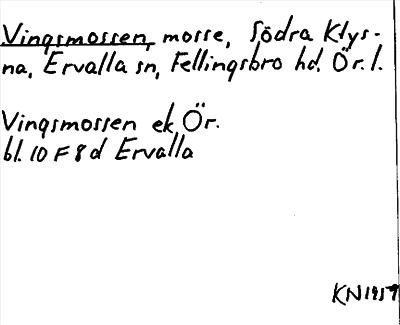 Vingsmossen, mosse, Södra Klys-
na, Ervalla sn, Fellingsbro hd. Ör. l.
Vingsmossen ek. Ör.
bl. 10 F 8 d Ervalla
KN 1957